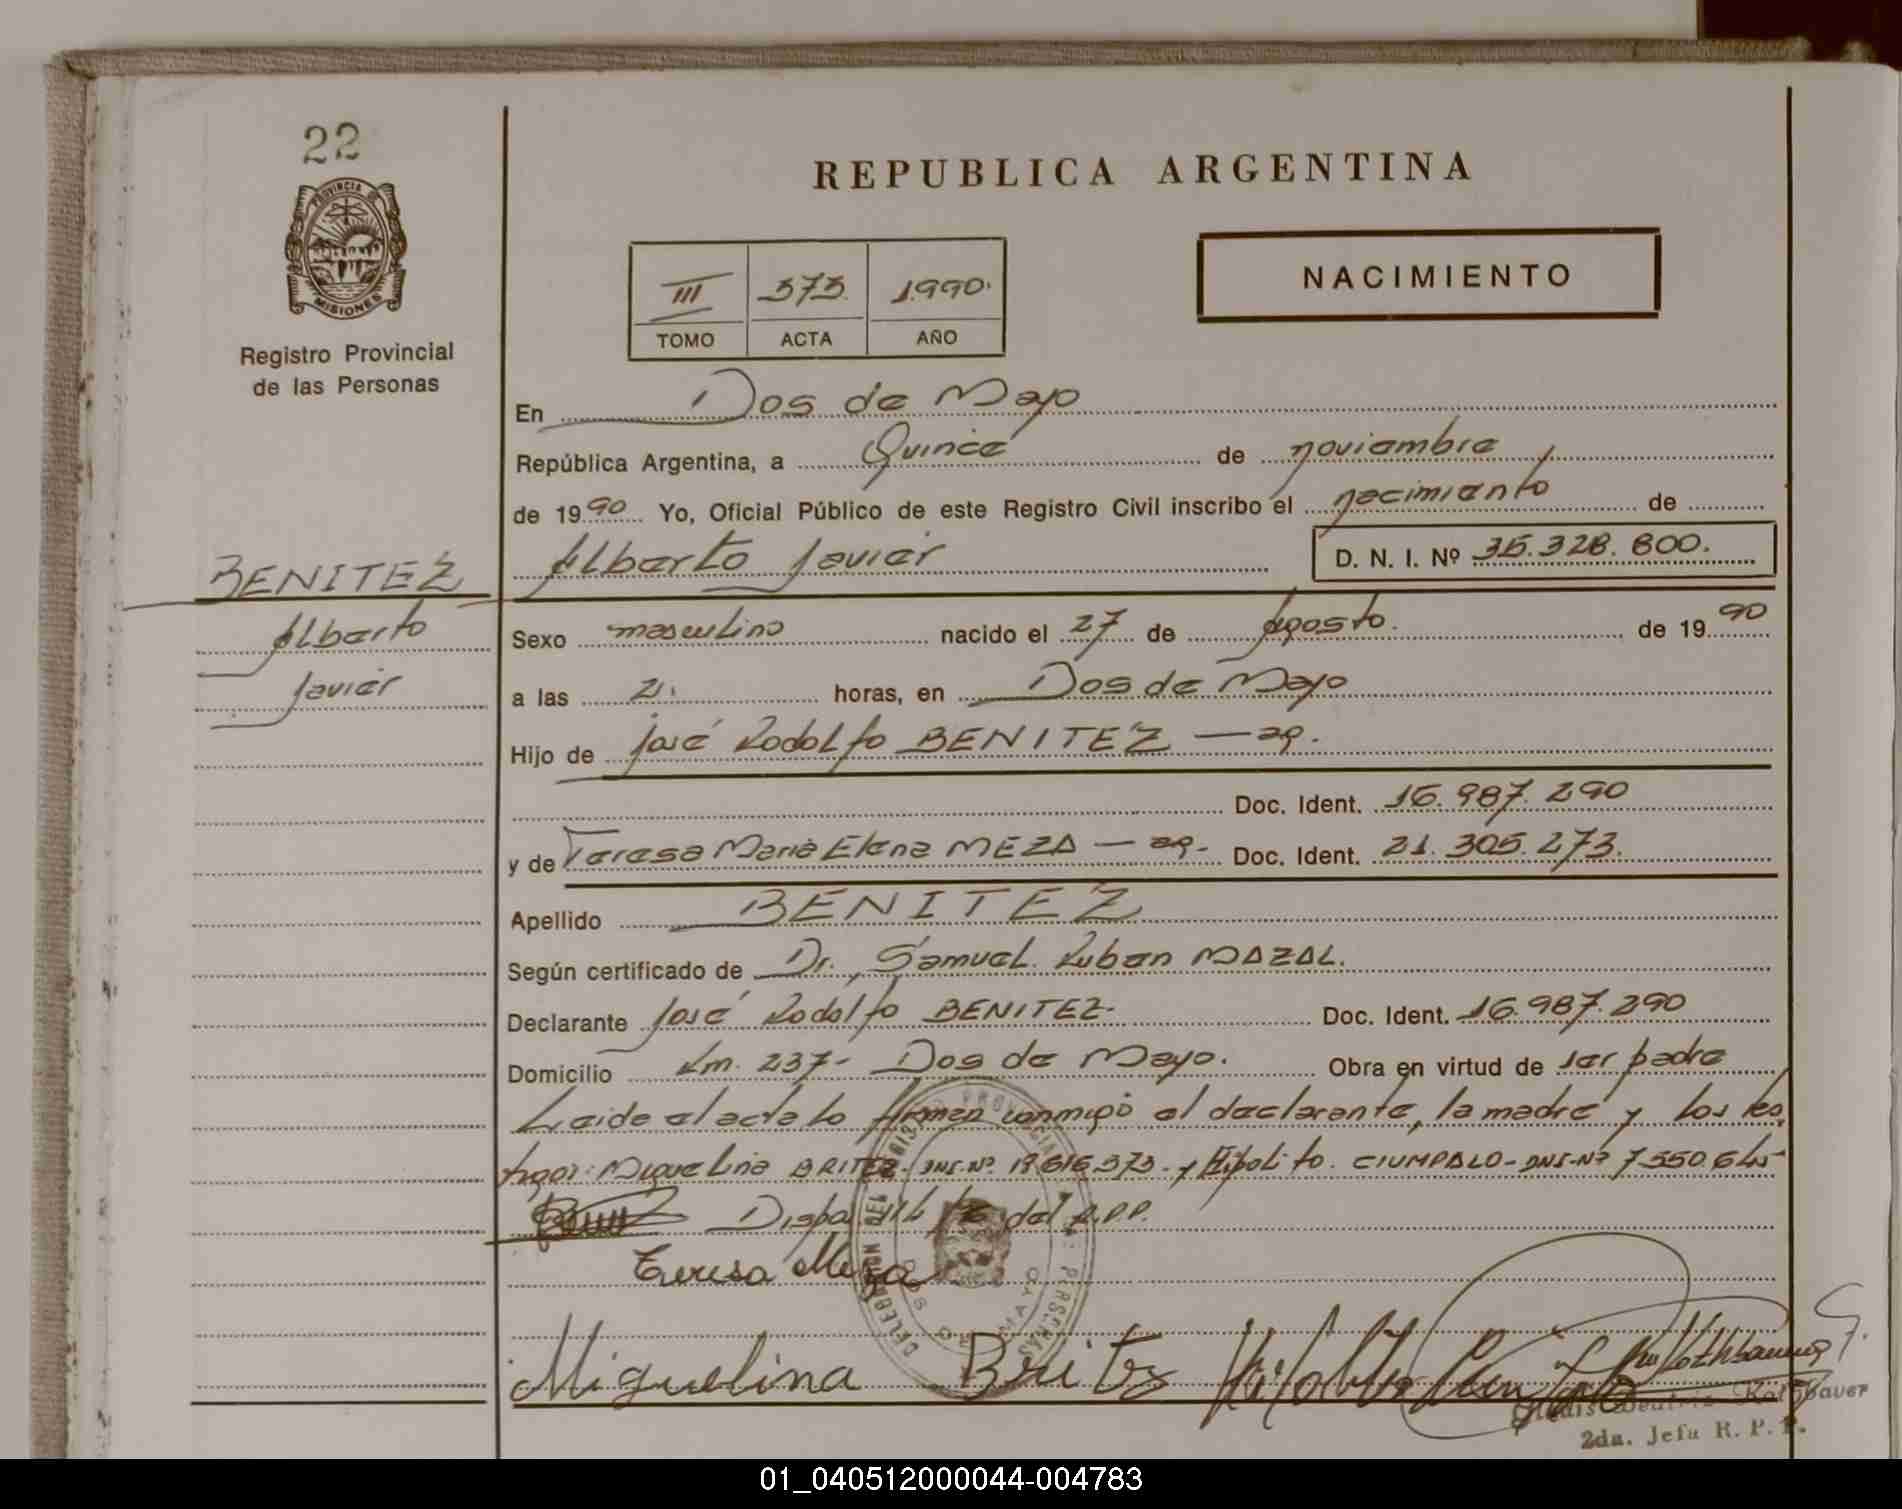 22
PROVINCIA DE
MISIONES
Registro Provincial
de las Personas
REPUBLICA ARGENTINA
III 373 1990
TOMO ACTA AÑO
NACIMIENTO
En Dos de Mayo
República Argentina, a Quince de noviembre
de 1990 Yo, Oficial Público de este Registro Civil inscribo el nacimiento de
Alberto Javier D. N. I. Nº 35.328.800.
BENITEZ
Alberto
Javier
Sexo masculino nacido el 27 de Agosto. de 1990
a las 21. horas, en Dos de Mayo
Hijo de José Rodolfo BENITEZ — ag.
Doc. Ident. 16.987.290
y de Teresa Maria Elena MEZA — ag. Doc. Ident. 21.305.273.
Apellido BENITEZ
Según certificado de Dr. Samuel Ruben MAZAL.
Declarante José Rodolfo BENITEZ- Doc. Ident. 16.987.290
Domicilio Km. 237- Dos de Mayo. Obra en virtud de ser padre
Leida el acta lo firman conmigo el declarante, la madre y los tes
tigos: Miguelina BRITEZ- DNI-Nº 19.616.373- y Hipolito CIUMPALO- DNI-Nº
del R.P.P.
Teresa Meza
Miguelina Britz
DELEGACION DEL REGISTRO PROVINCIAL DE PERSONAS
DOS DE MAYO
Gladis Beatriz Rothbauer
2da. Jefa R. P. P.
01_040512000044-004783